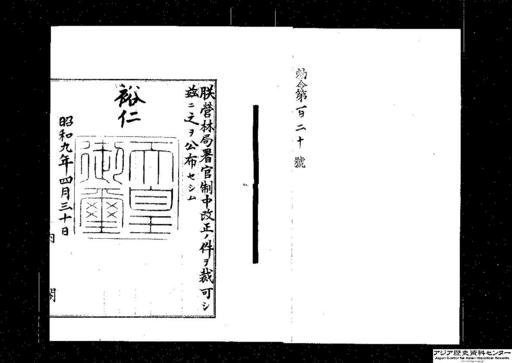 勅令第百二十號
朕營林局署官制中改正ノ件ヲ裁可シ
茲ニ之ヲ公布セシム
裕仁
天皇御璽
昭和九年四月三十日
内閣
アジア歴史資料センター
Japan Center for Asian Historical Records